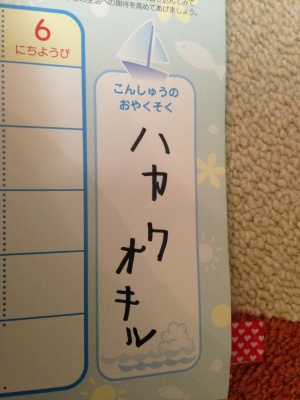 生活への期待を高めてあげましょう。
6
にちようび
こんしゅうの
おやくそく
ハカク
オキル